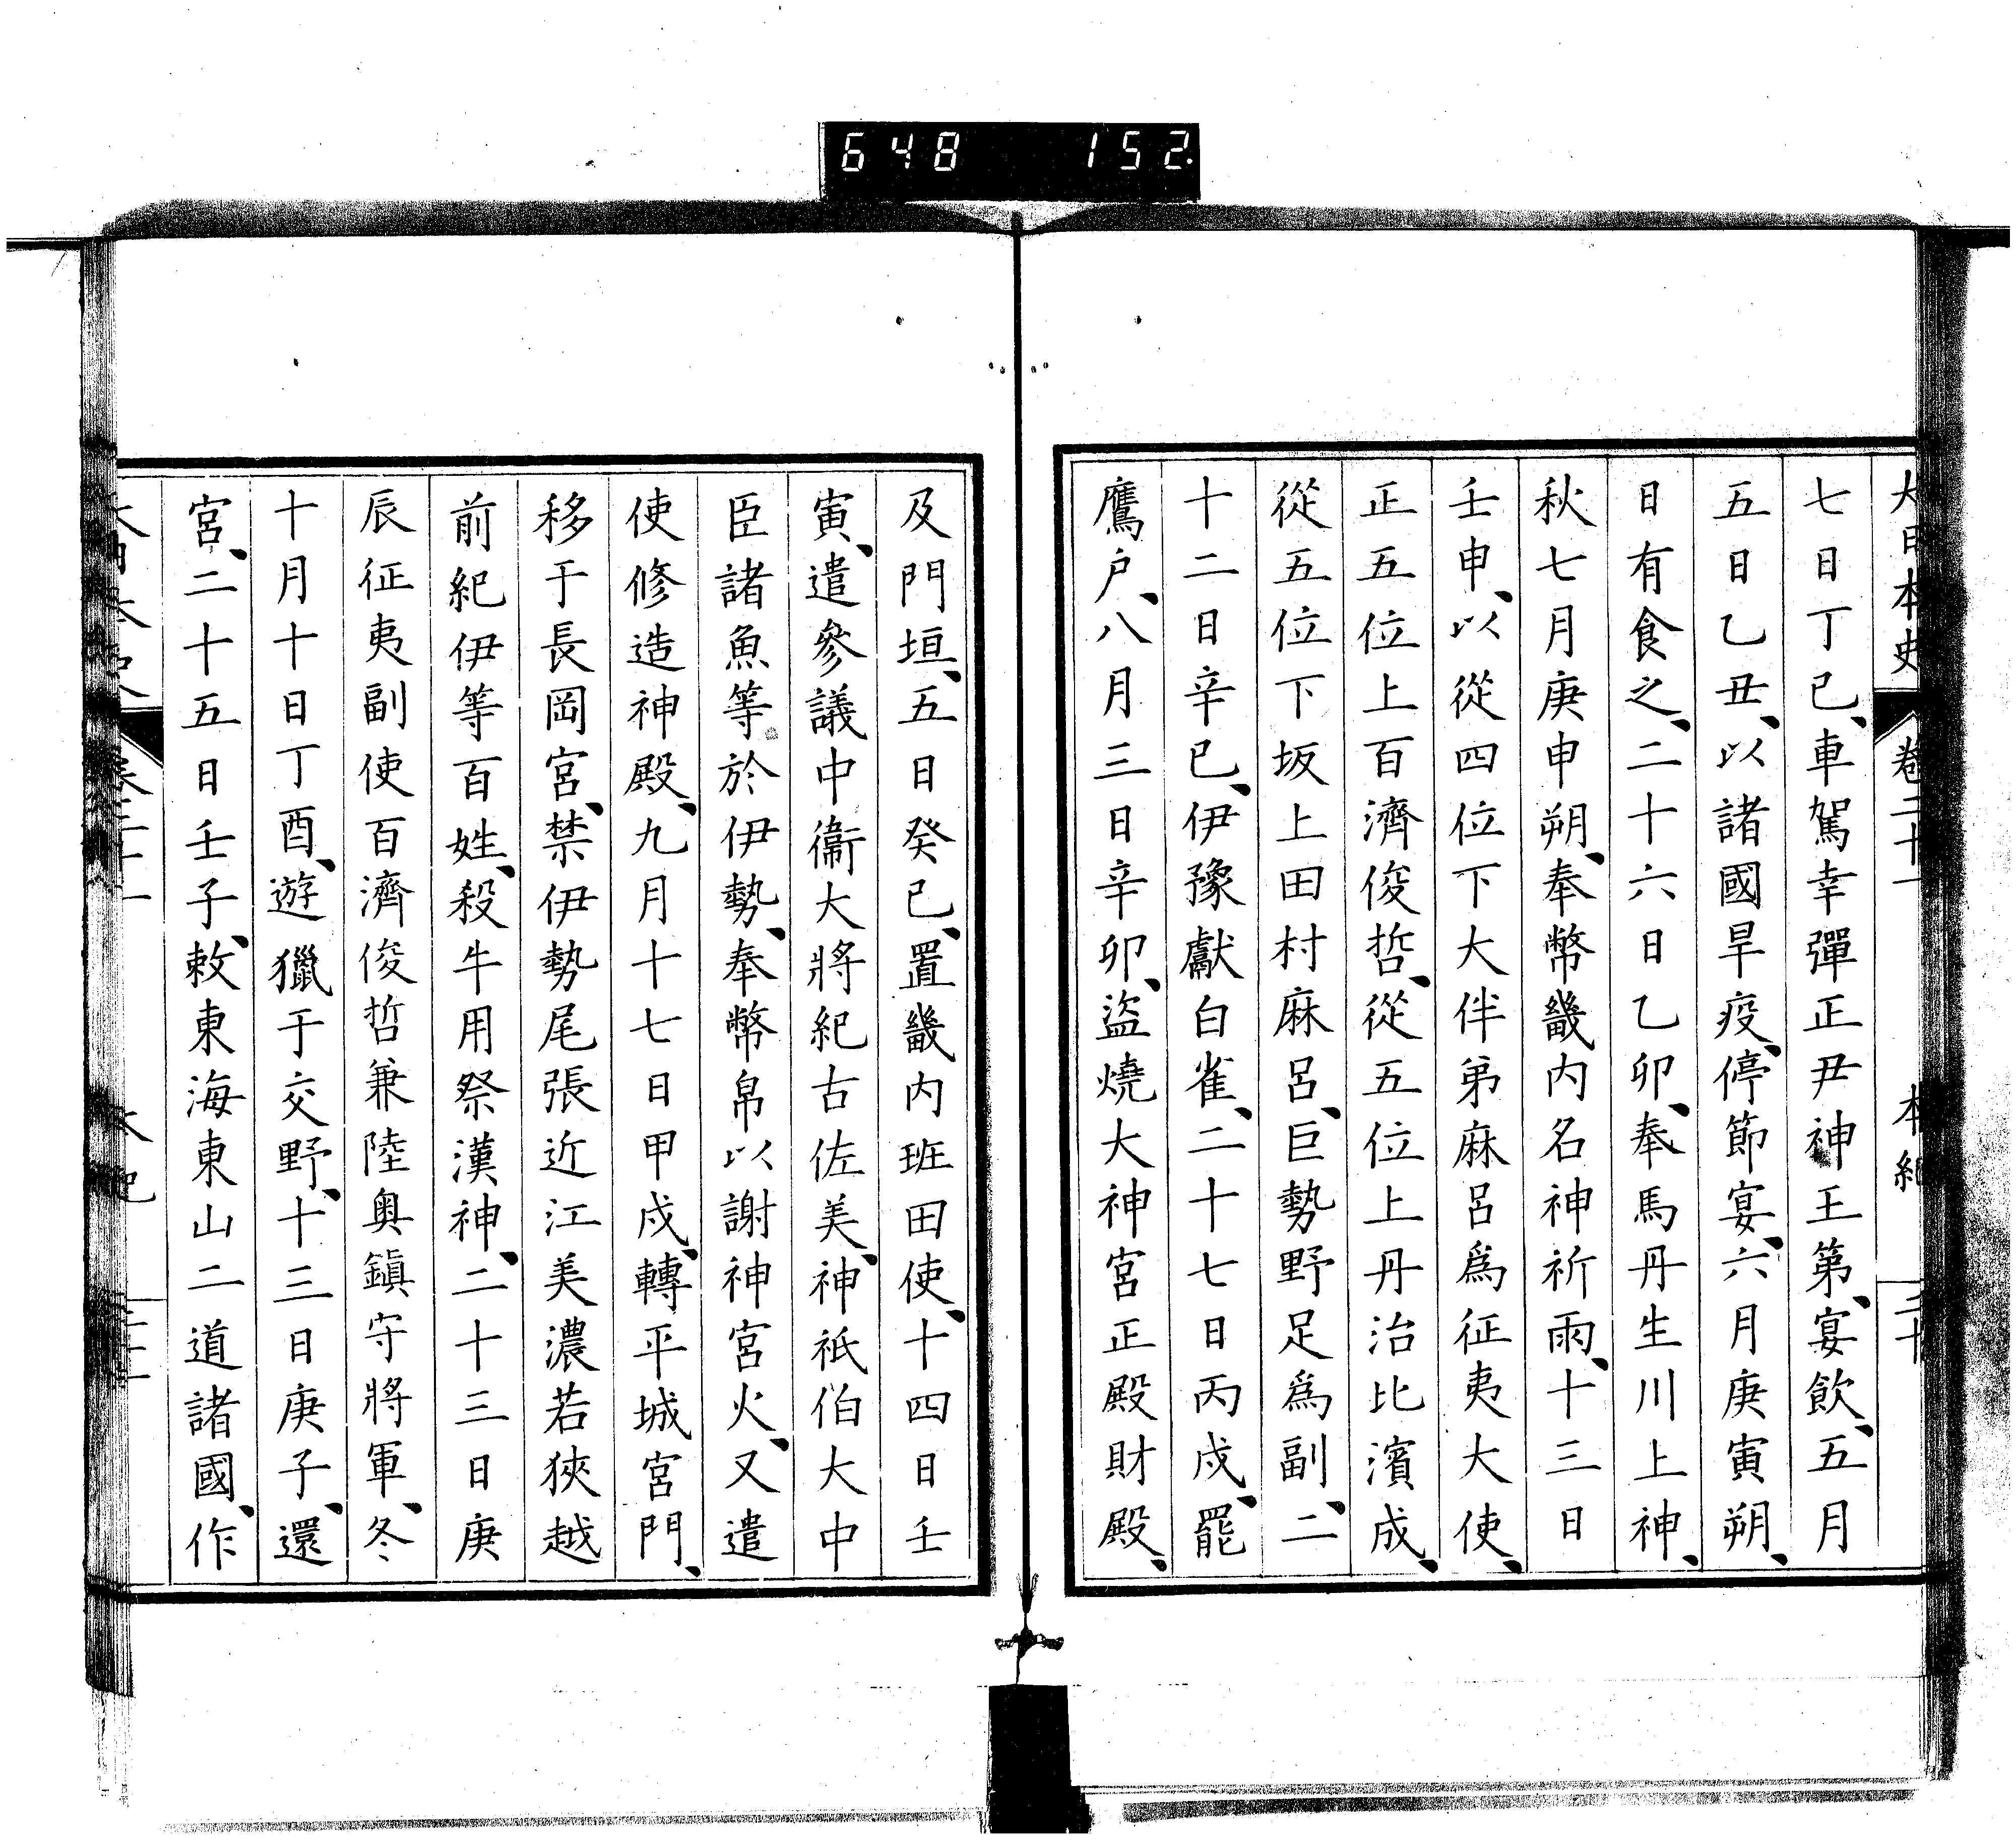 648 152.
大日本史 卷二十一 本紀 二十
七日丁巳、車駕幸彈正尹神王第、宴飲、五月
五日乙丑、以諸國旱疫、停節宴、六月庚寅朔、
日有食之、二十六日乙卯、奉馬丹生川上神、
秋七月庚申朔、奉幣畿内名神祈雨、十三日
壬申、以從四位下大伴弟麻呂爲征夷大使、
正五位上百濟俊哲、從五位上丹治比濱成、
從五位下坂上田村麻呂、巨勢野足爲副、二
十二日辛巳、伊豫獻白雀、二十七日丙戌、罷
鷹戸、八月三日辛卯、盜燒大神宮正殿財殿、
及門垣、五日癸巳、置畿内班田使、十四日壬
寅、遣參議中衞大將紀古佐美、神祇伯大中
臣諸魚等於伊勢、奉幣帛以謝神宮火、又遣
使修造神殿、九月十七日甲戌、轉平城宮門、
移于長岡宮、禁伊勢尾張近江美濃若狹越
前紀伊等百姓、殺牛用祭漢神、二十三日庚
辰征夷副使百濟俊哲兼陸奥鎭守將軍、冬
十月十日丁酉、遊獵于交野、十三日庚子、還
宮、二十五日壬子、敕東海東山二道諸國、作